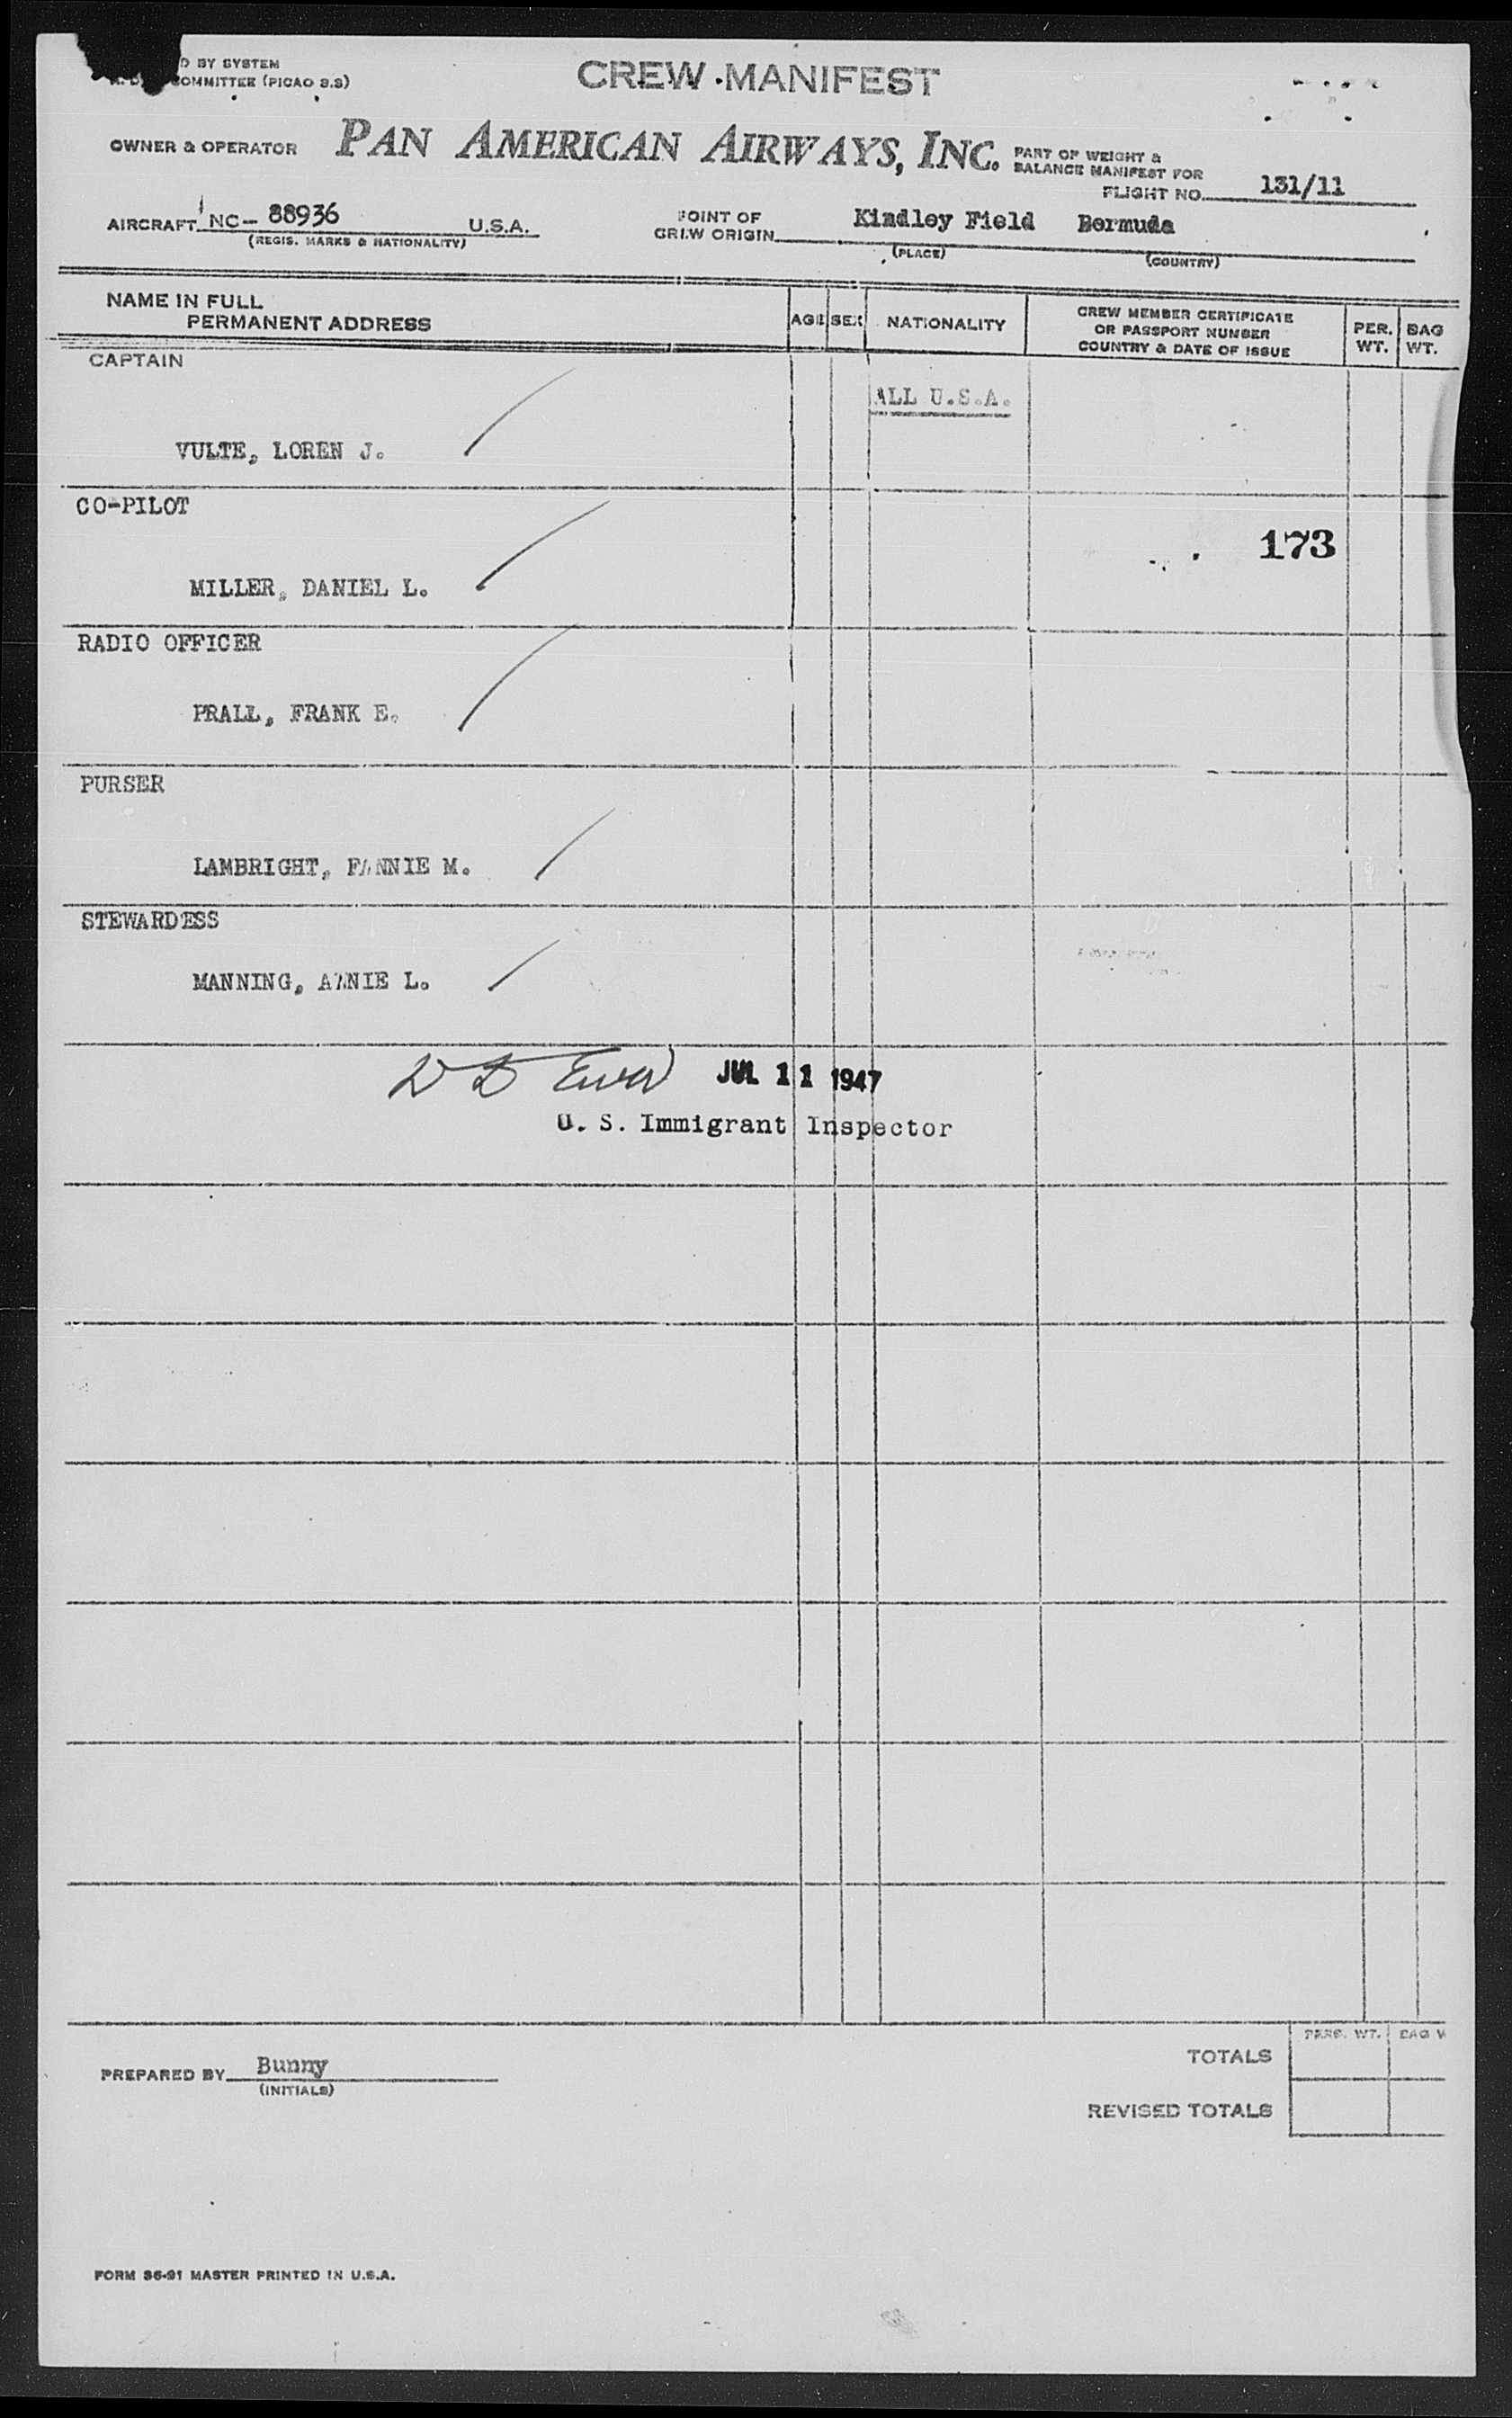 D BY SYSTEM
COMMITTEE (PICAO 8.3)
CREW MANIFEST
OWNER & OPERATOR PAN AMERICAN AIRWAYS, INC. PART OF WEIGHT &
BALANCE MANIFEST FOR
FLIGHT NO. 131/11
AIRCRAFT NC- 88936 U.S.A.
(REGIS. MARKS & NATIONALITY)
POINT OF
CREW ORIGIN Kindley Field Bermuda
(PLACE) (COUNTRY)
NAME IN FULL
PERMANENT ADDRESS
AGE SEX NATIONALITY
CREW MEMBER CERTIFICATE
OR PASSPORT NUMBER
COUNTRY & DATE OF ISSUE
PER. WT.
BAG WT.
CAPTAIN
ALL U.S.A.
VULTE, LOREN J.
CO-PILOT
173
MILLER, DANIEL L.
RADIO OFFICER
PRALL, FRANK E.
PURSER
LAMBRIGHT, FANNIE M.
STEWARDESS
MANNING, ANNIE L.
JUL 11 1947
U. S. Immigrant Inspector
PERS. WT. BAG W
TOTALS
PREPARED BY Bunny
(INITIALS)
REVISED TOTALS
FORM 36-91 MASTER PRINTED IN U.S.A.